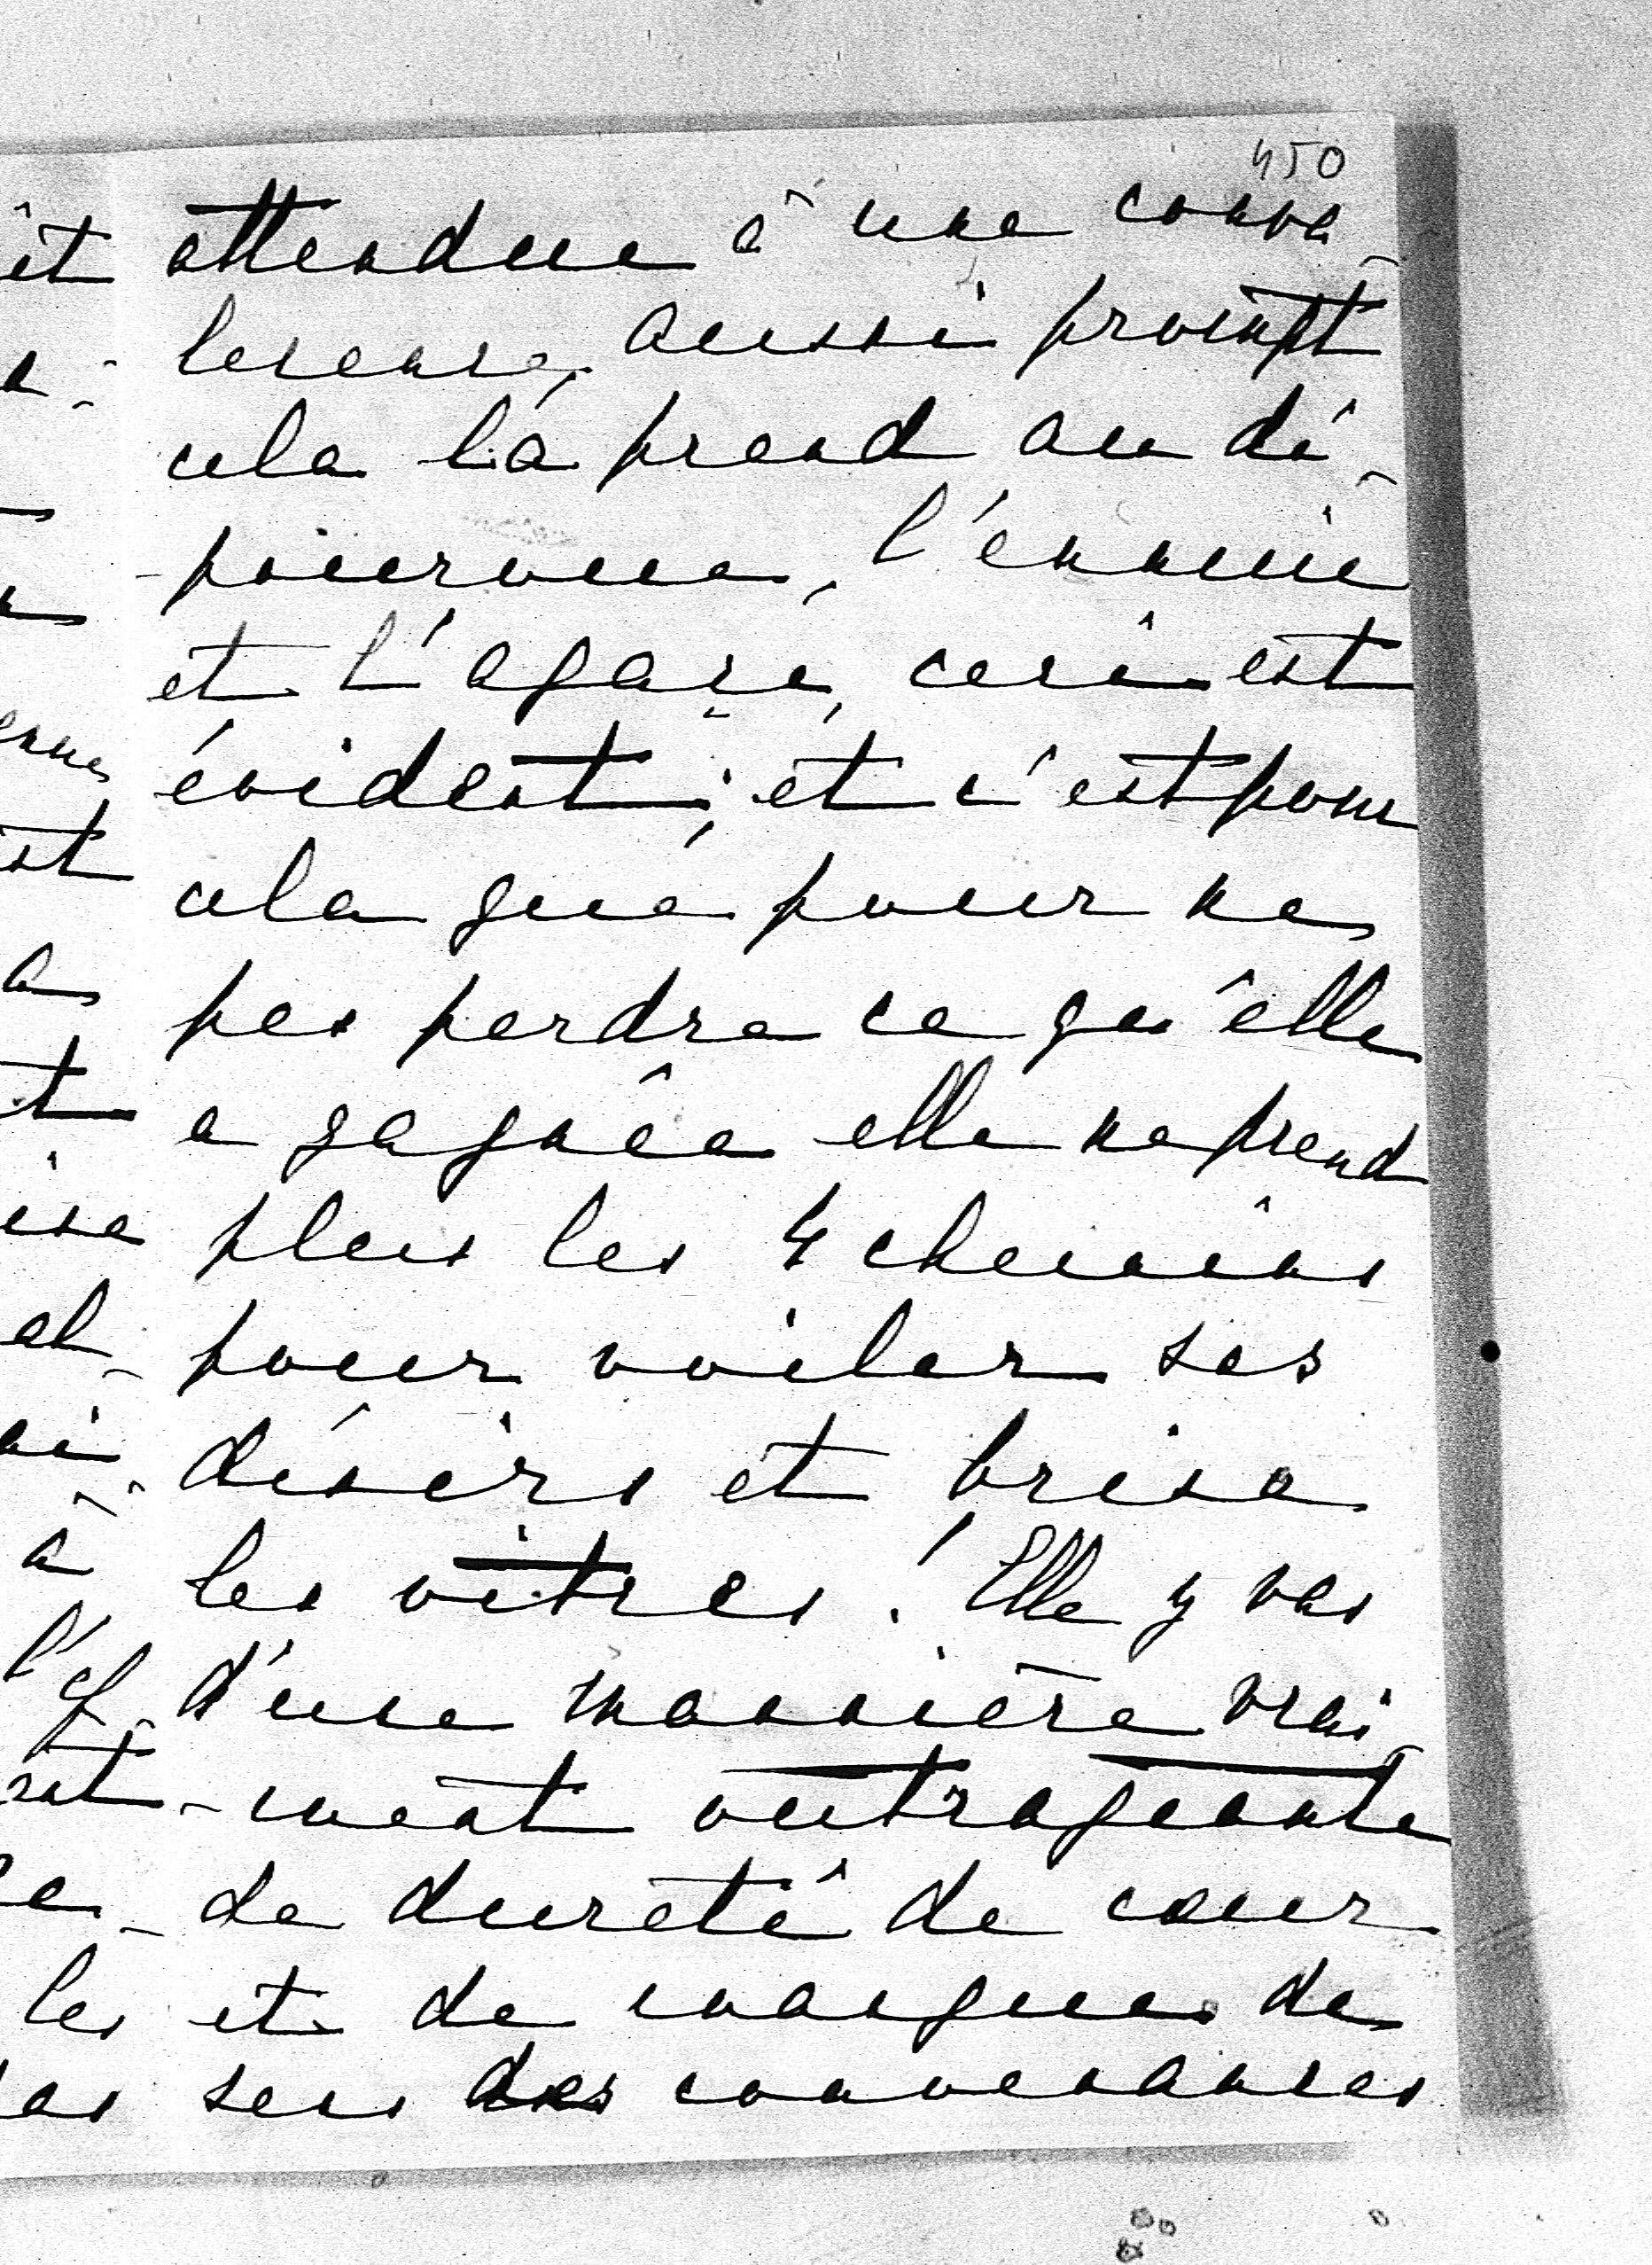 450
attendue à une conva-
lescence, aussi prompt
cela la prend au dé-
-pourvue, l'ennuie
et l'agace, ceci est
évident; et c'est pour
cela que pour ne
pas perdre ce qu'elle
a gagnée elle ne prend
plus les 4 chemins
pour voiler ses
désirs et brise
les vitres! Elle y vas
d'une mannière vrai-
-ment outrageante
de dureté de cœur
et de manque de
sens des convenances